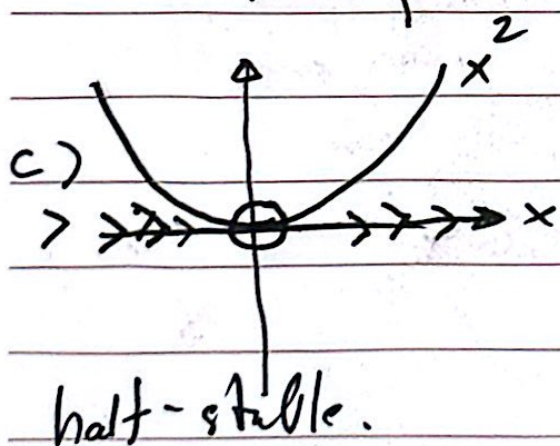 x²
c)
x
half-stable.